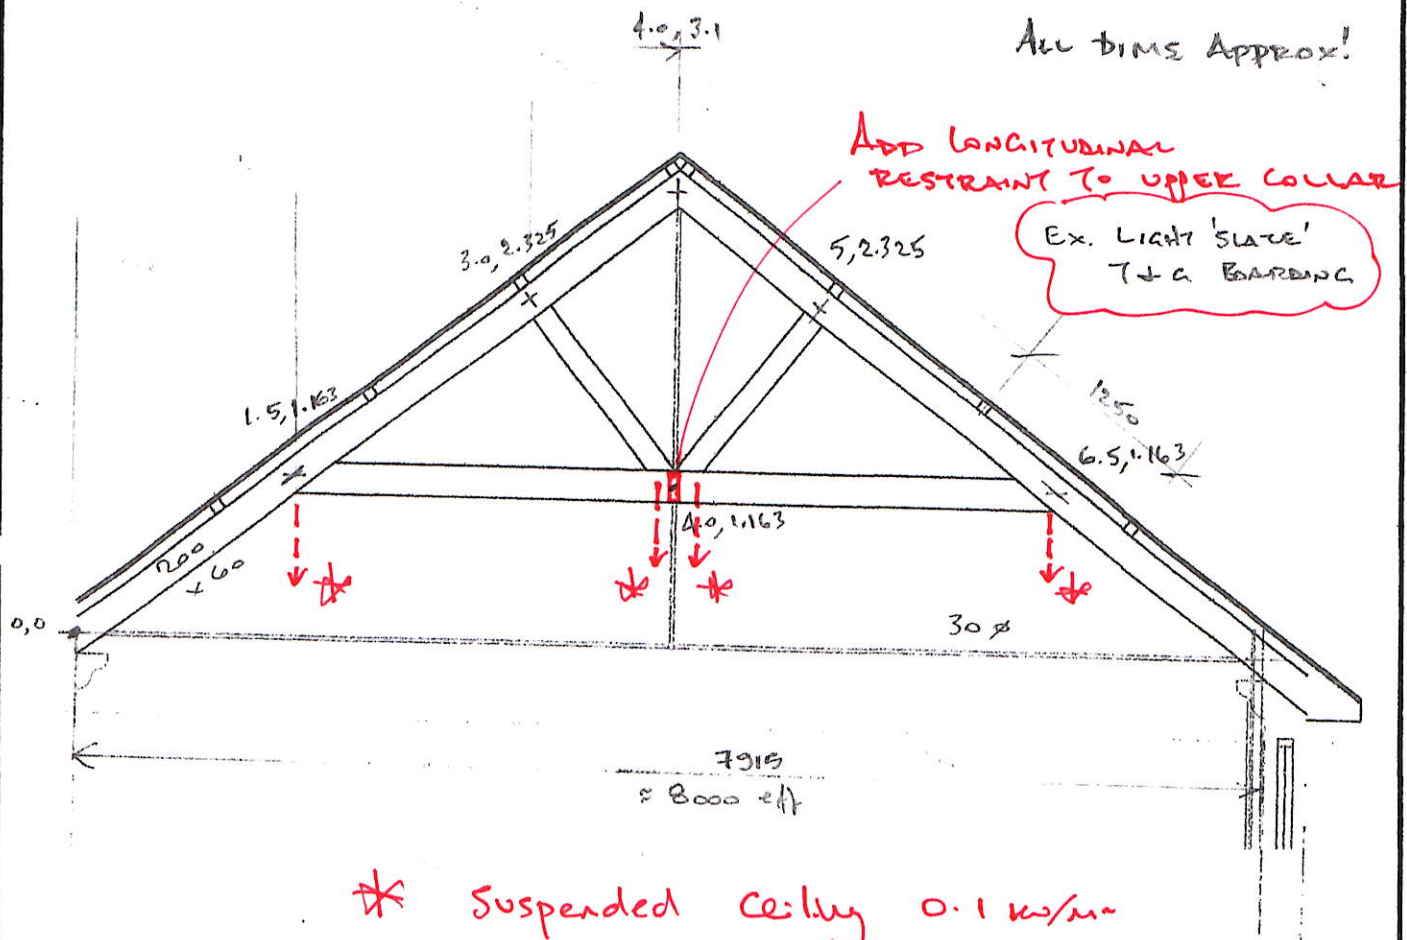 4.0, 3.1
ALL DIMS APPROX!
ADD LONGITUDINAL
RESTRAINT TO UPPER COLLAR
Ex. LIGHT 'SLATE'
T & G BOARDING
3.0, 2.325
5, 2.325
1250
1.5, 1.163
6.5, 1.163
4.0, 1.163
200
x 60
0,0
30 ø
7915
≈ 8000 eff
* Suspended Ceiling 0.1